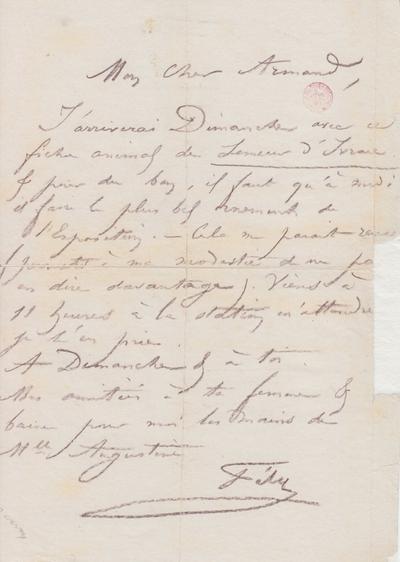 Mon cher Armand,
J'arriverai Dimanche avec ce
fichu animal de Semeur d'Ivraie
& prier du bon, il faut qu'à midi
il fasse le plus bel ornement de
l'Exposition. — Cela me parait
à ma modestie de ne pas
en dire davantage). Viens à
11 heures à la station m'attendre
je t'en prie.
A Dimanche & à toi
Mes amitiés à ta femme &
baise pour moi les mains de
Mlle Augustine
Fély